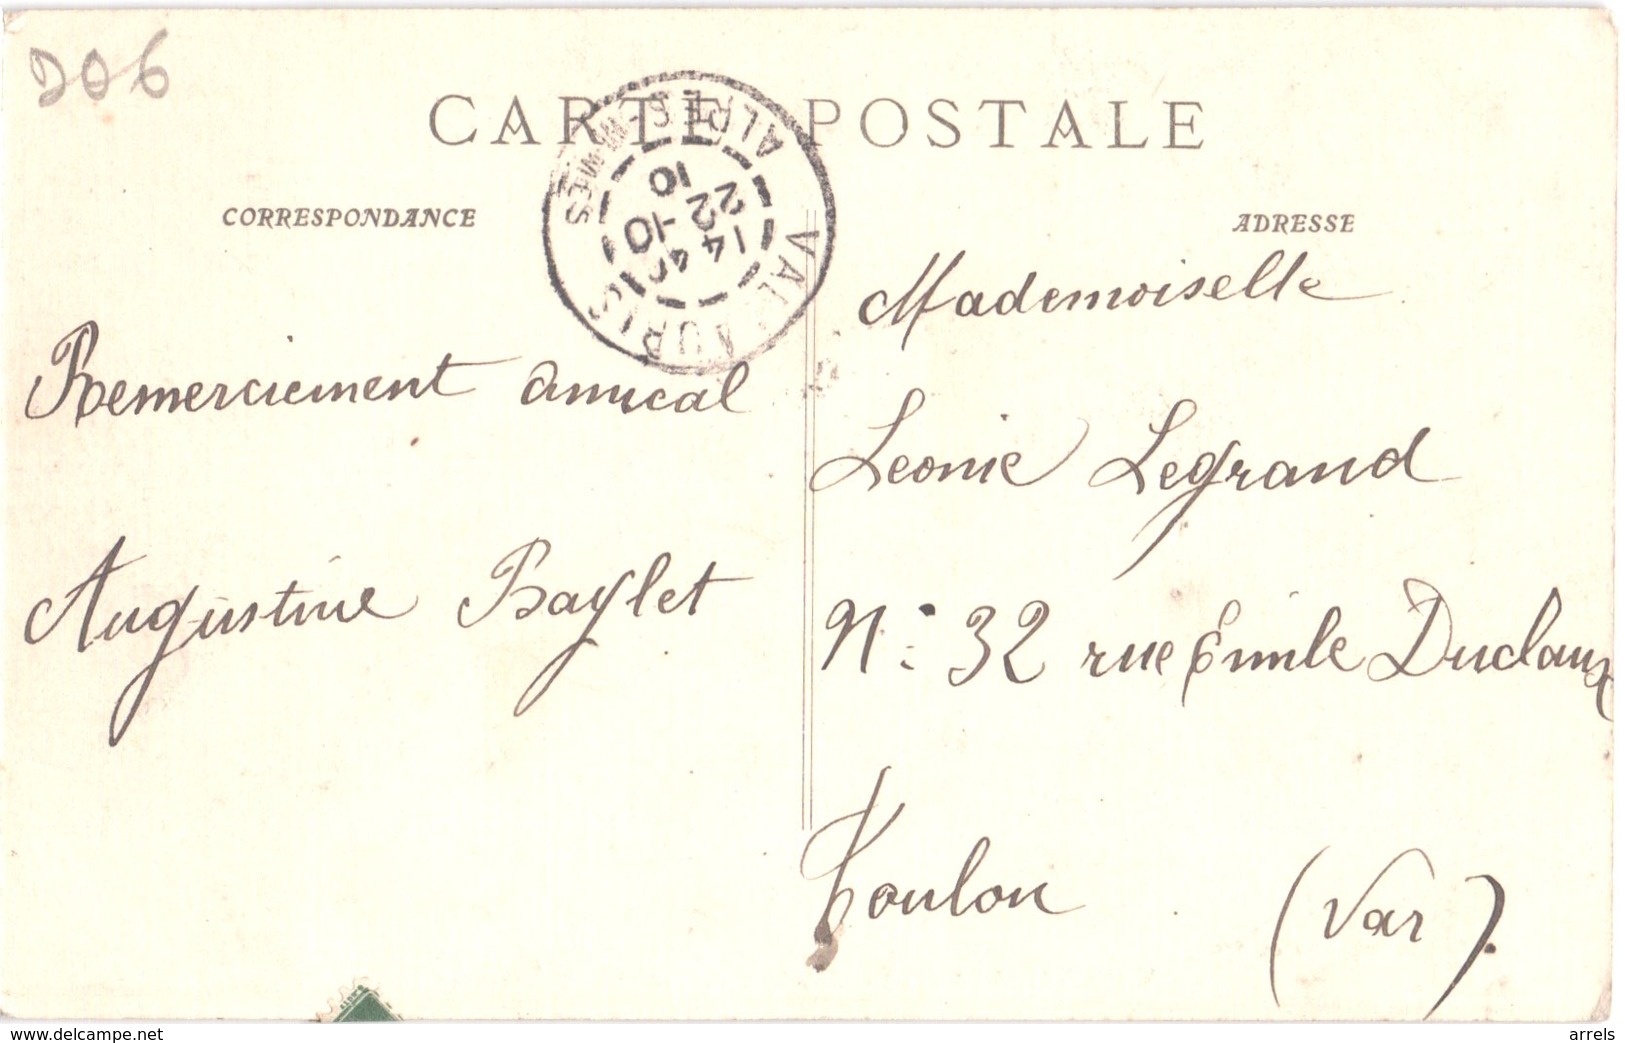 206
CARTE POSTALE
CORRESPONDANCE
ADRESSE
VALLAURIS
ALPES-MMES
14 40
22 -10
10
Remerciement amical
Augustine Baylet
Mademoiselle
Leonie Legrand
N: 32 rue Emile Duclaux
Toulon (Var).
www.delcampe.net
arrels